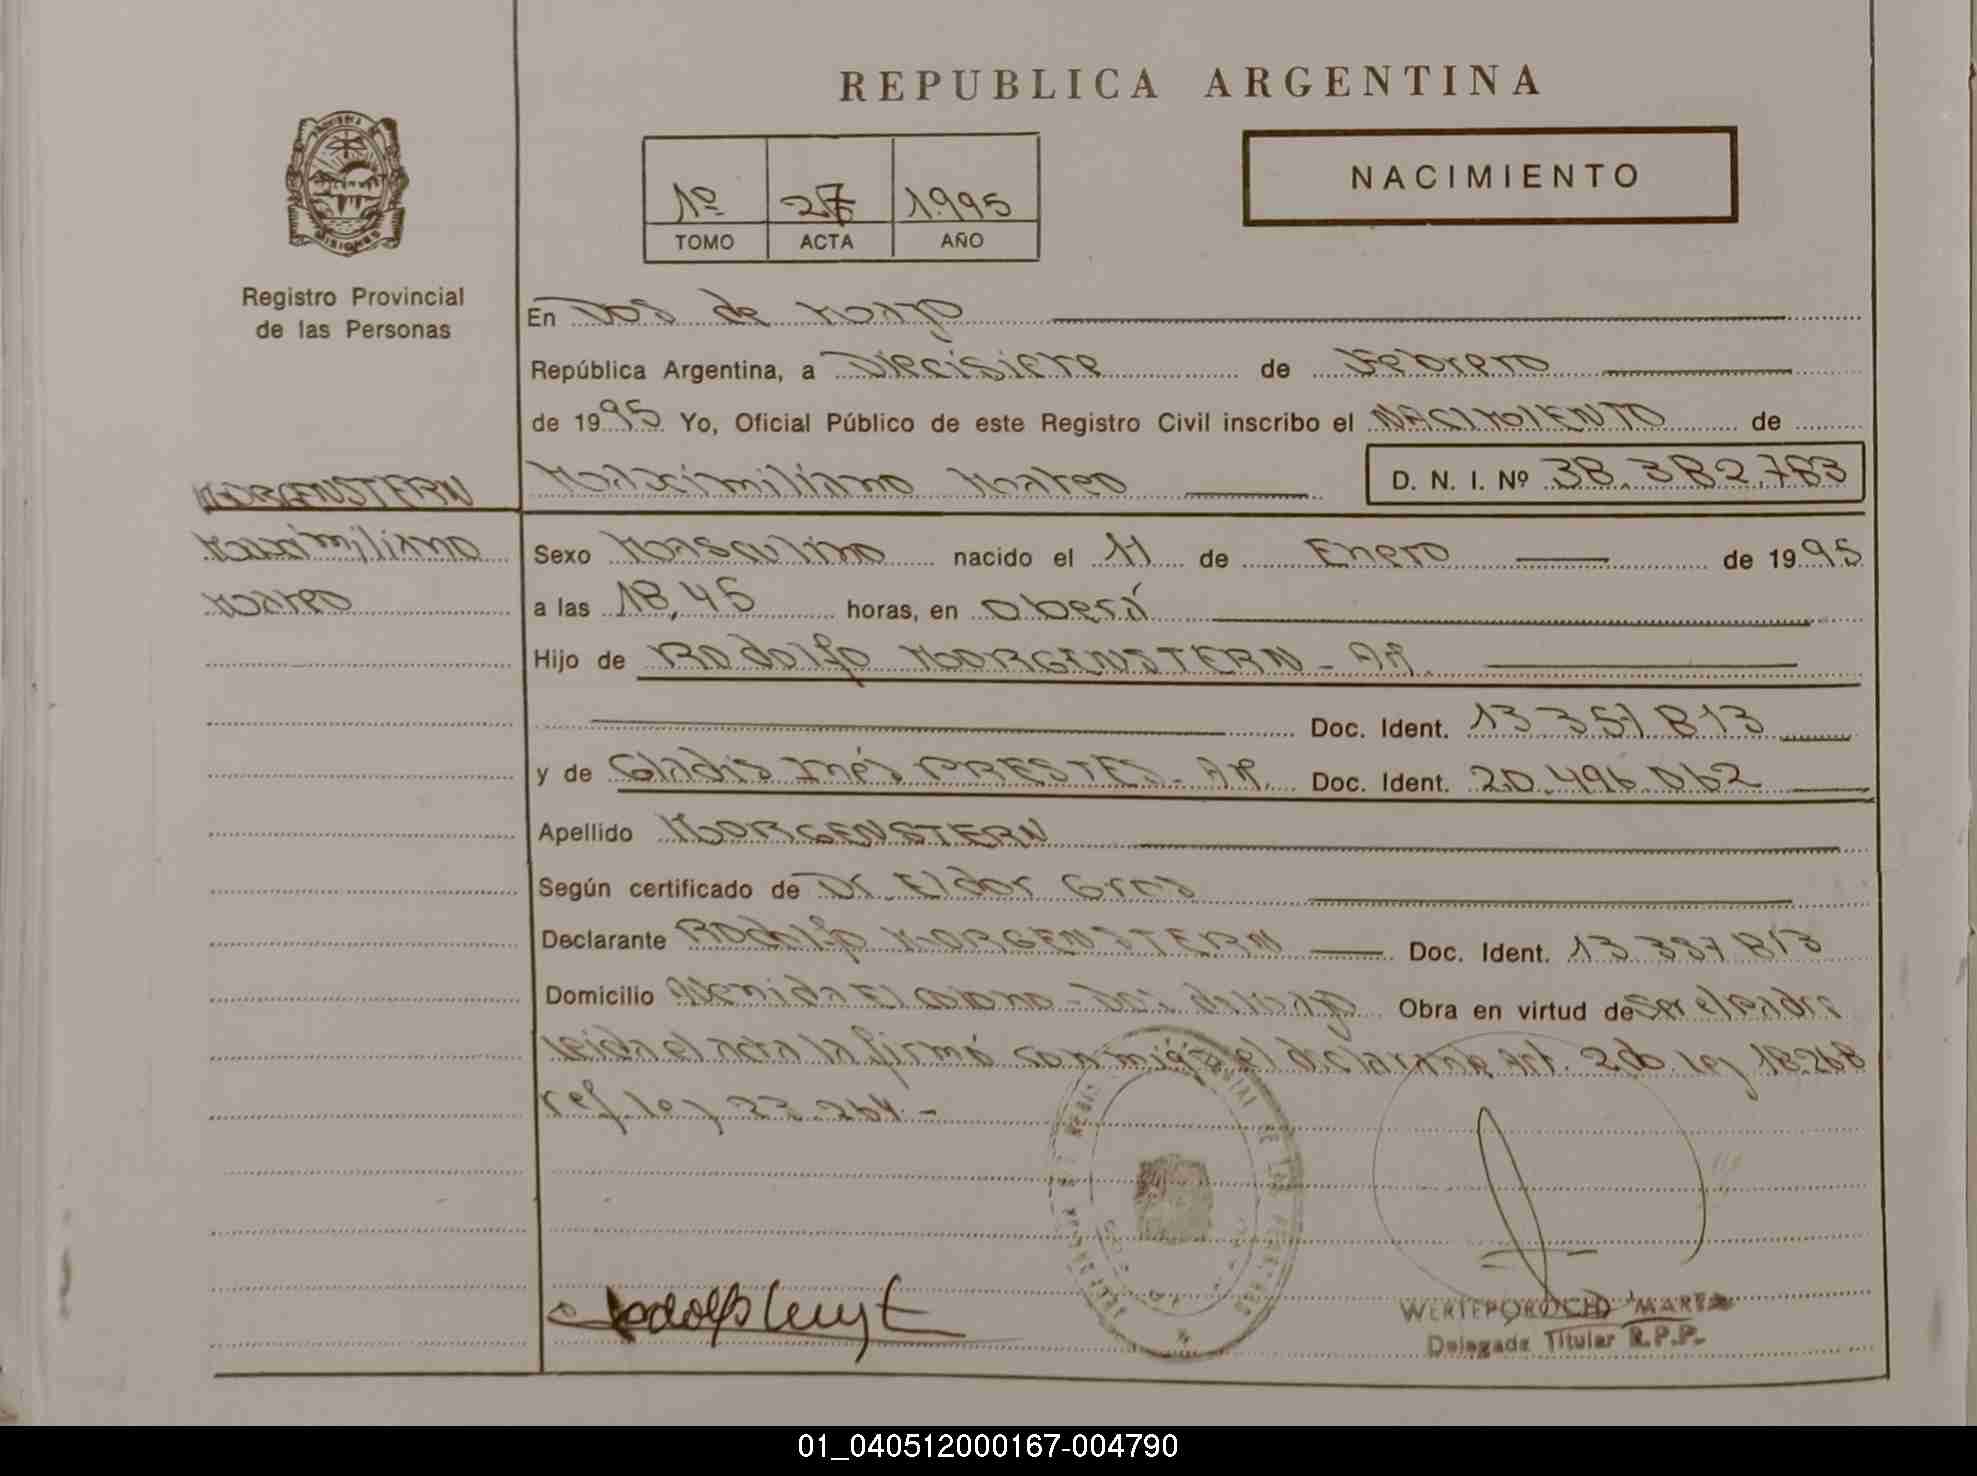 REPUBLICA ARGENTINA
1º 27 1995
TOMO ACTA AÑO
NACIMIENTO
MISIONES
Registro Provincial
de las Personas
En Dos de Mayo
República Argentina, a Diecisiete de Febrero
de 1995 Yo, Oficial Público de este Registro Civil inscribo el NACIMIENTO de
MORGENSTERN
Maximiliano
Mateo
Maximiliano Mateo D. N. I. Nº 38.382.783
Sexo Masculino nacido el 11 de Enero de 1995
a las 18,45 horas, en Oberá
Hijo de Rodolfo MORGENSTERN - Ar.
Doc. Ident. 13.357.813
y de Gladis Inés PRESTES - Ar. Doc. Ident. 20.496.062
Apellido MORGENSTERN
Según certificado de Dr. Eldor Gros
Declarante Rodolfo MORGENSTERN Doc. Ident. 13.357.813
Domicilio Avenida El Colono - Dos de Mayo Obra en virtud de ser el padre
leida el acta la firmó conmigo el declarante Art. 2do ley 18.268
ref. ley 22.264.-
Rodolfo
WERTEPOROCH MARTA
Delegada Titular R.P.P.
01_040512000167-004790